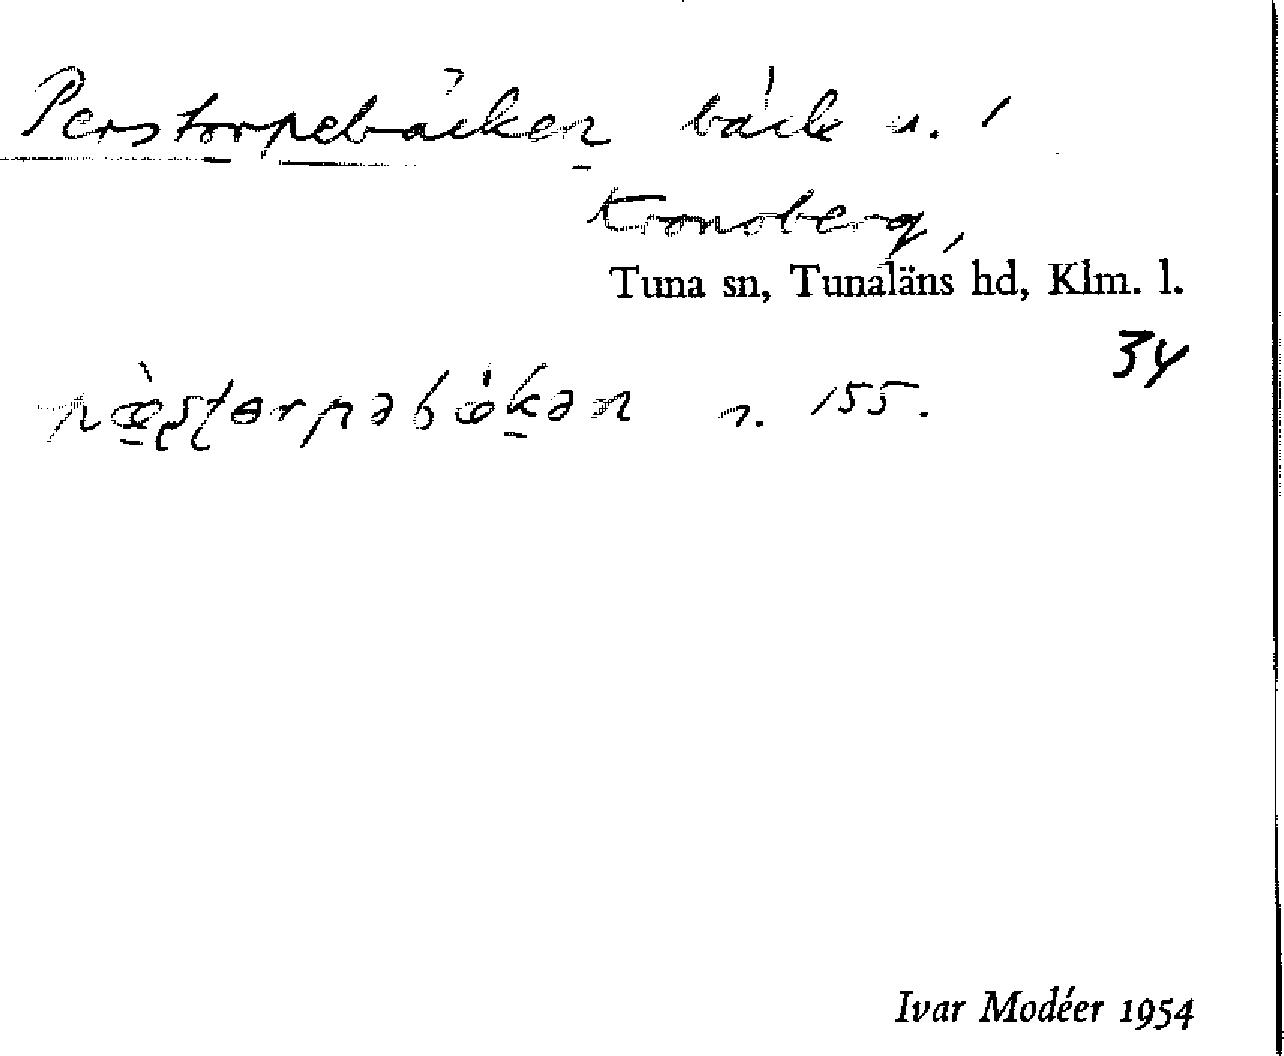 Perstorpebäcken bäck n. /
Kronoberg,
Tuna sn, Tunaläns hd, Klm. l.
34
pæ̀ʂʈorpəbǽkən n. 155.
Ivar Modéer 1954